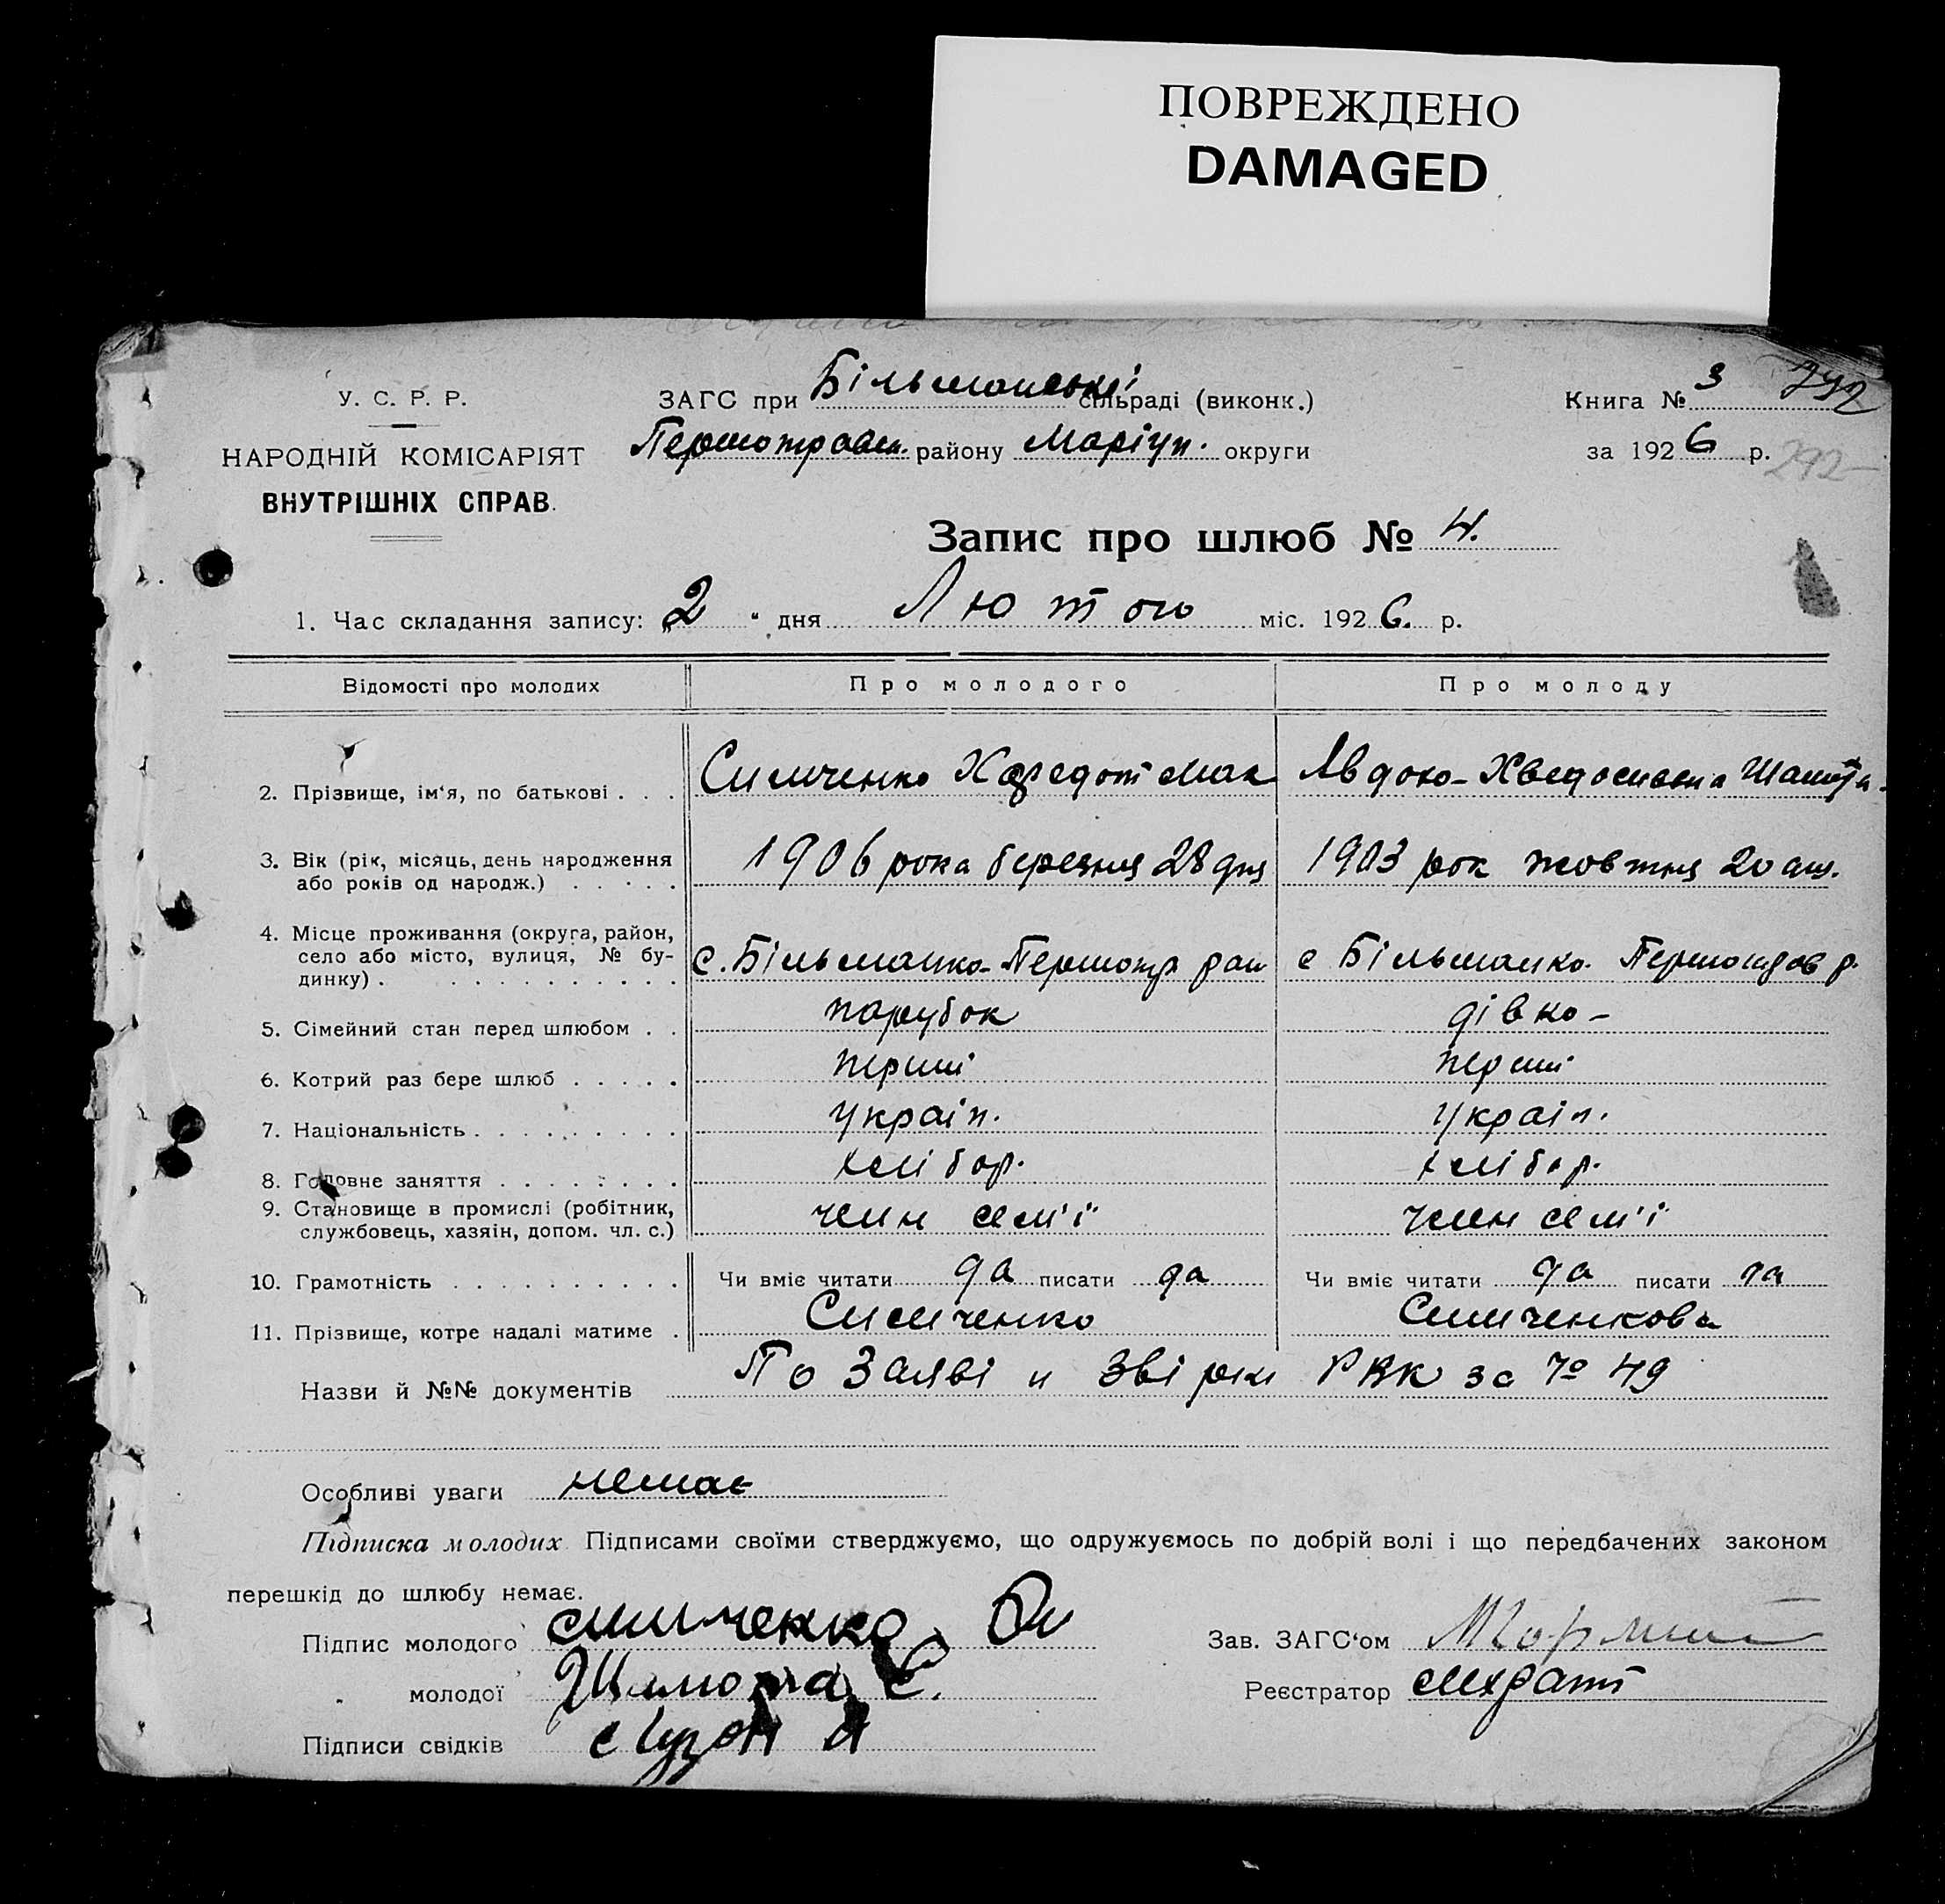 ПОВРЕЖДЕНО
DAMAGED
У. С. Р. Р.
НАРОДНІЙ КОМІСАРІЯТ
ВНУТРІШНІХ СПРАВ.
ЗАГС при Більманські сільраді (виконк.)
Першотравн. району Маріуп. округи
Книга № 3
за 1926 р.
292
Запис про шлюб № 4.
1. Час складання запису: "2" дня Лютого міс. 1926. р.
Відомості про молодих
Про молодого
Про молоду
2. Прізвище, ім'я, по батькові . . .
Симченко Мак
Авдоко-
3. Вік (рік, місяць, день народження або років од народж.) . . . . .
1906 рока березня 28 дня
1903 рок жовтня 20 дня.
4. Місце проживання (округа, район, село або місто, вулиця, № будинку) . . . . . . . . . . .
с. Більманко-Першотр рай
с Більманко. р.
5. Сімейний стан перед шлюбом . .
парубок
дівко-
6. Котрий раз бере шлюб . . . . .
перший
перший
7. Національність . . . . . . . . .
україн.
україн.
8. Головне заняття . . . . . . . .
хлібор.
хлібор.
9. Становище в промислі (робітник, службовець, хазяін, допом. чл. с.)
член сем'ї
член сем'ї
10. Грамотність . . . . . . . . . .
Чи вміє читати да писати да
Чи вміє читати да писати да
11. Прізвище, котре надалі матиме .
Симченко
Симченкова
Назви й №№ документів По Заяві и Звірки РВК за № 49
Особливі уваги немає
Підписка молодих. Підписами своїми стверджуємо, що одружуємось по добрій волі і що передбачених законом
перешкід до шлюбу немає.
Підпис молодого симченко
Зав. ЗАГС'ом
" молодої
Реєстратор
Підписи свідків